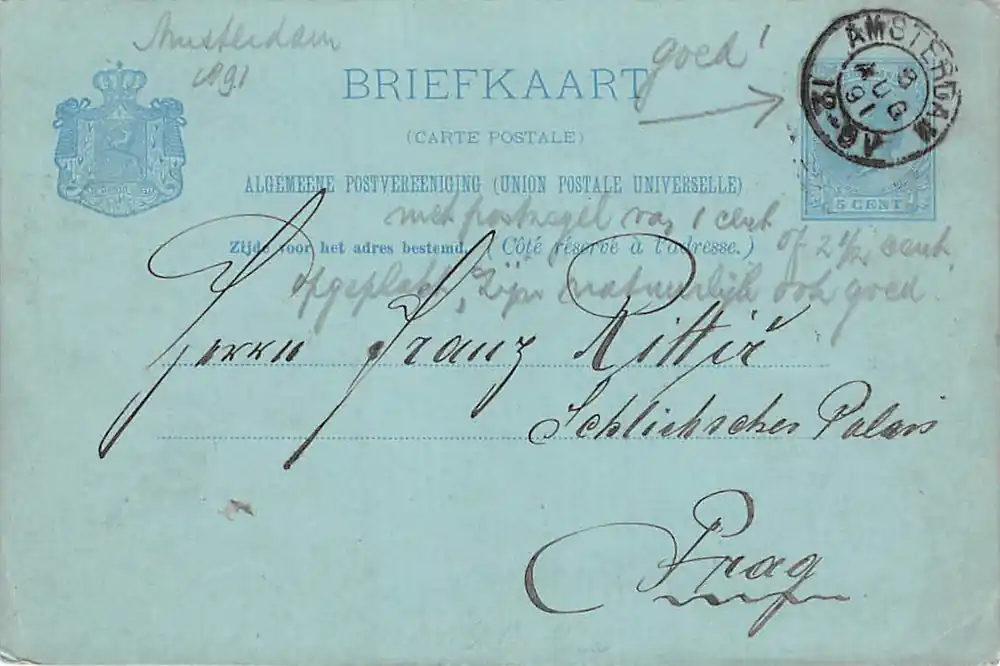 Amsterdam
1891
goed!
BRIEFKAART
(CARTE POSTALE)
ALGEMEENE POSTVEREENIGING (UNION POSTALE UNIVERSELLE)
Zijde voor het adres bestemd. (Côté réservé à l'adresse.)
AMSTERDAM
8 AUG 91
12-
5 CENT
met postzegel van 1 cent
of 2 1/2 cent
opgeplakt, zijn natuurlijk ook goed.
Herrn Franz
Schlicksches Palais
Prag